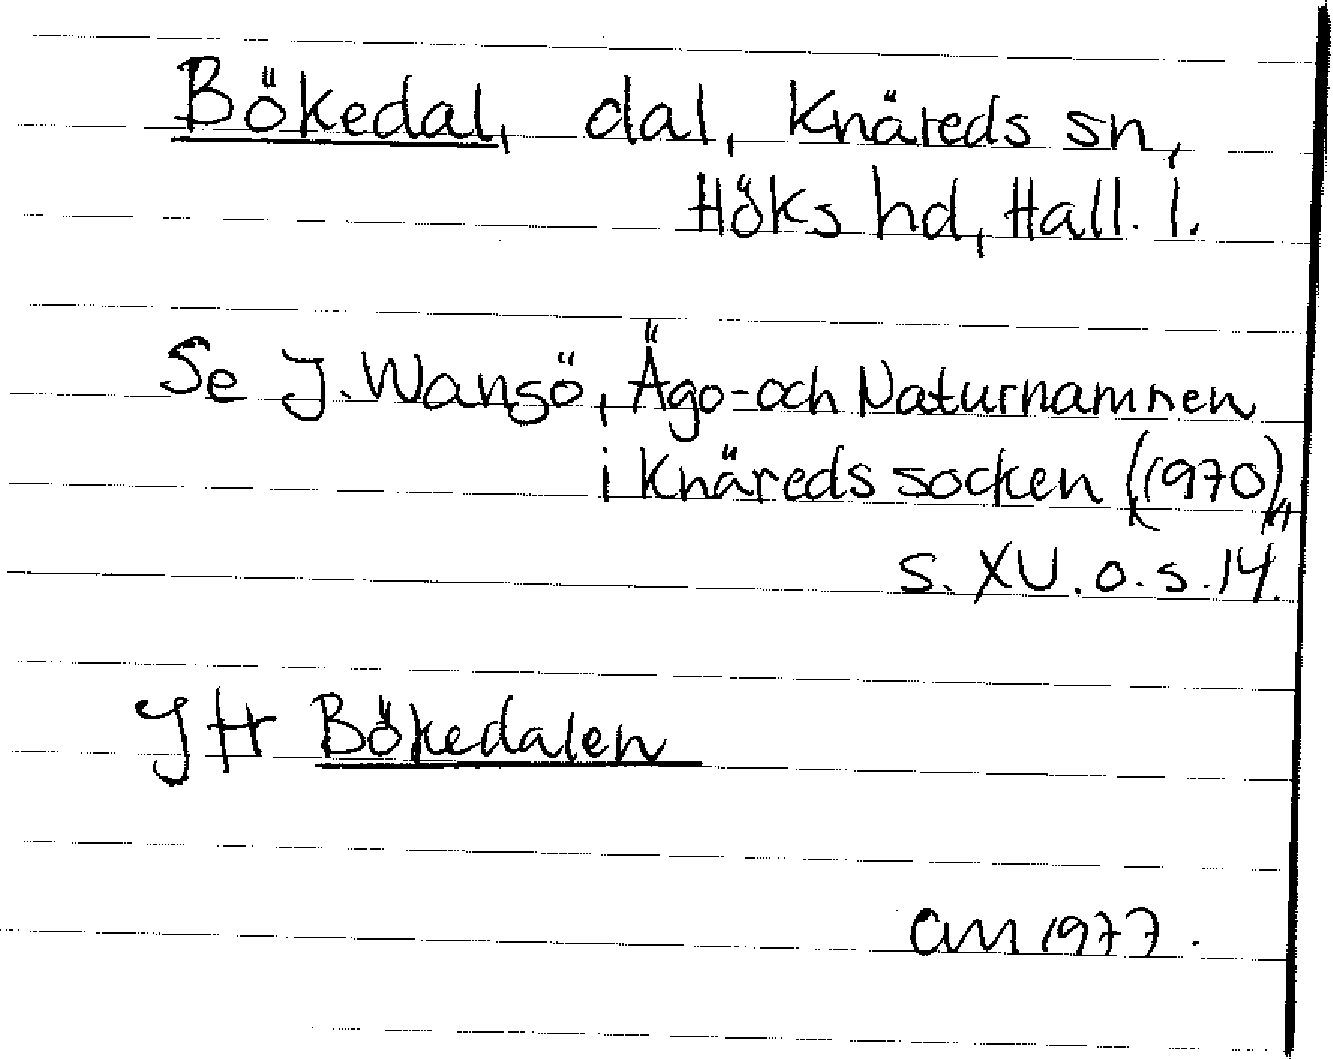 Bökedal, dal, Knäreds sn,
Höks hd, Hall. l.
Se J. Wansö, Ägo- och Naturnamnen
i Knäreds socken (1970),
s. XV. o. s. 14.
JH Bökedalen
am 1977.